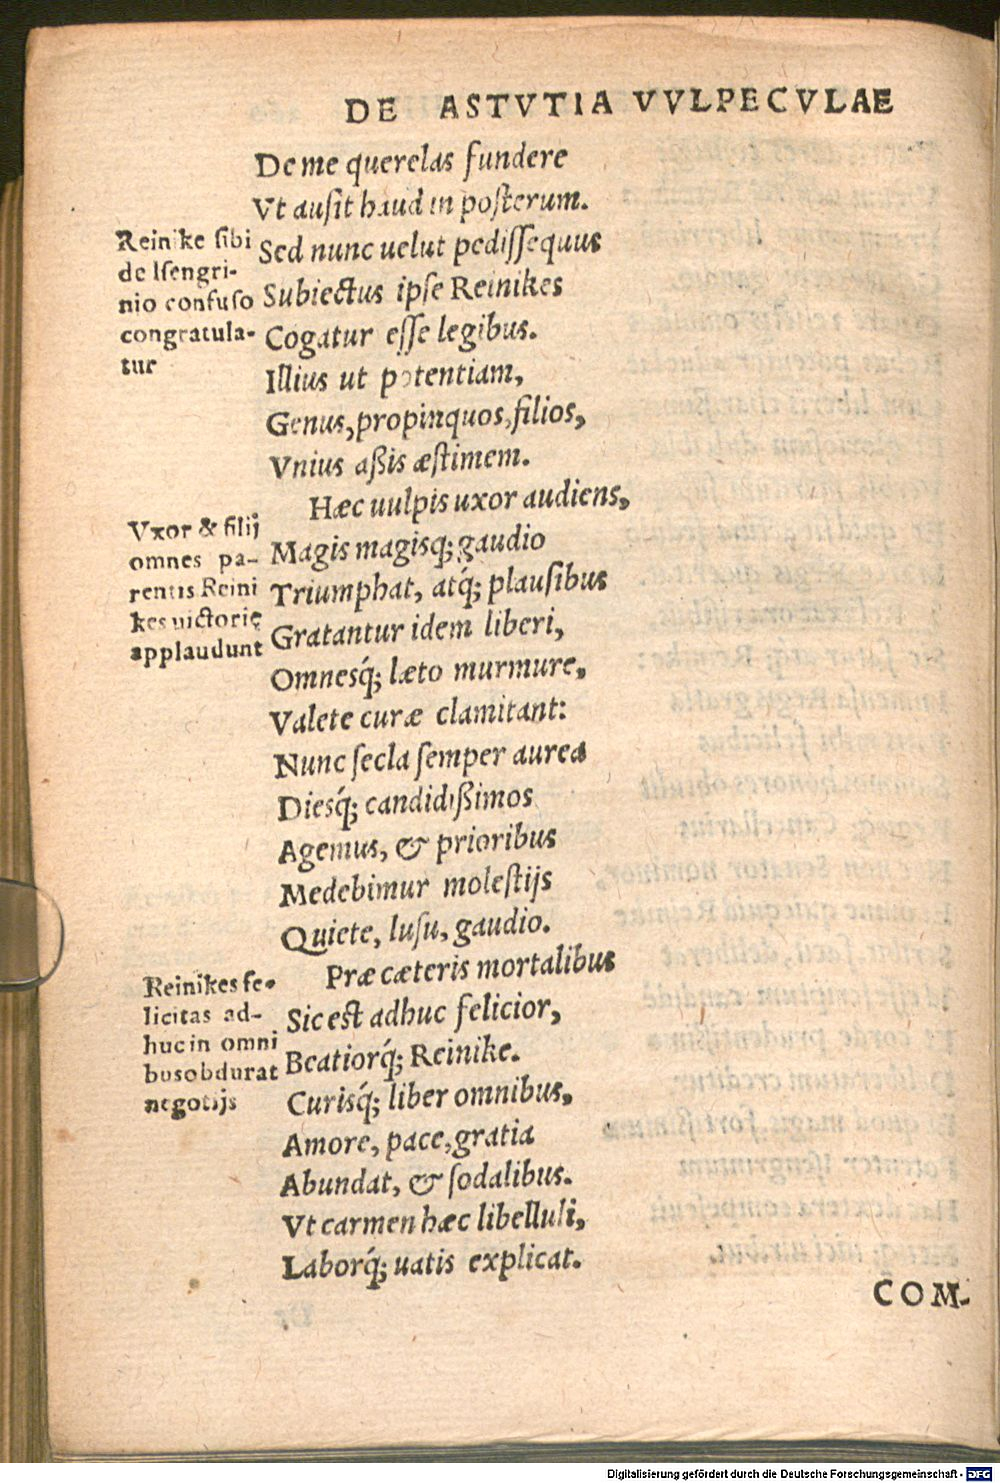 DE ASTVTIA VVLPECVLAE
De me querelas fundere
Vt ausit haud in posterum.
Reinike sibi
de Isengri-
nio confuso
congratula-
tur
Sed nunc uelut pedissequus
Subiectus ipse Reinikes
Cogatur esse legibus.
Illius ut potentiam,
Genus, propinquos, filios,
Vnius aßis æstimem.
Hæc uulpis uxor audiens,
Vxor & filij
omnes pa-
rentis Reini
kes uictorię
applaudunt
Magis magisq́; gaudio
Triumphat, atq́; plausibus
Gratantur idem liberi,
Omnesq́; læto murmure,
Valete curæ clamitant:
Nunc secla semper aurea
Diesq́; candidißimos
Agemus, & prioribus
Medebimur molestijs
Quiete, lusu, gaudio.
Præ cæteris mortalibus
Reinikes fe-
licitas ad-
huc in omni
bus obdurat
negotijs
Sic est adhuc felicior,
Beatiorq́; Reinike.
Curisq́; liber omnibus,
Amore, pace, gratia
Abundat, & sodalibus.
Vt carmen hæc libelluli,
Laborq́; uatis explicat.
COM-
Digitalisierung gefördert durch die Deutsche Forschungsgemeinschaft - DFG